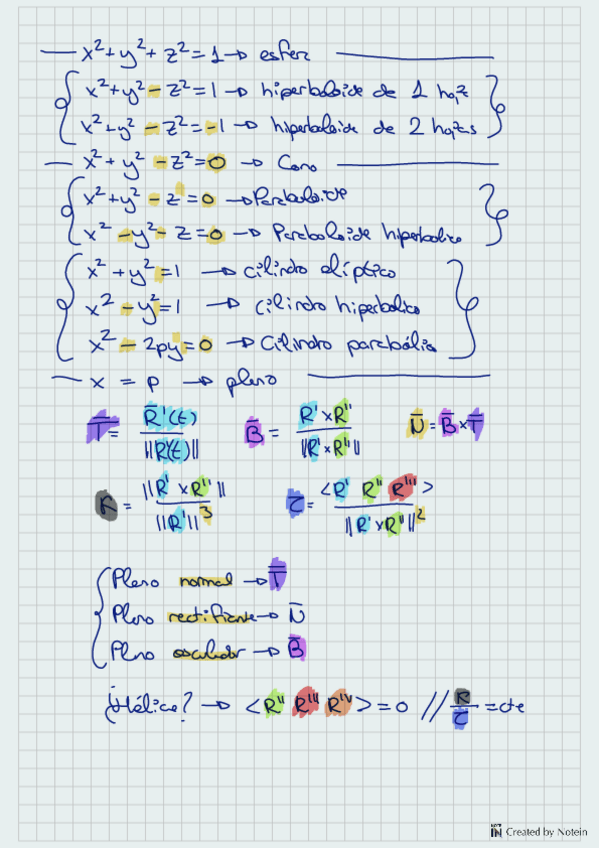 — x²+y²+z²=1 → esfera —
x²+y²-z²=1 → hiperboloide de 1 hoja
x²+y²-z²=-1 → hiperboloide de 2 hojas
— x²+y²-z²=0 → Cono —
x²+y²-z=0 → Paraboloide
x²-y²-z=0 → Paraboloide hiperbolico
x²+y²=1 → cilindro elíptico
x²-y²=1 → cilindro hiperbolico
x²-2py=0 → Cilindro parabólico
— x = p → plano —
T̄ = R̄'(t) / ||R'(t)|| B̄ = R'×R'' / ||R'×R''|| N̄ = B̄×T̄
K = ||R'×R''|| / ||R'||³ τ = <R' R'' R'''> / ||R'×R''||²
Plano normal → T̄
Plano rectificante → N̄
Plano osculador → B̄
¿Hélice? → <R'' R''' R'ⱽ> = 0 // K/τ = cte
NOTE IN Created by Notein